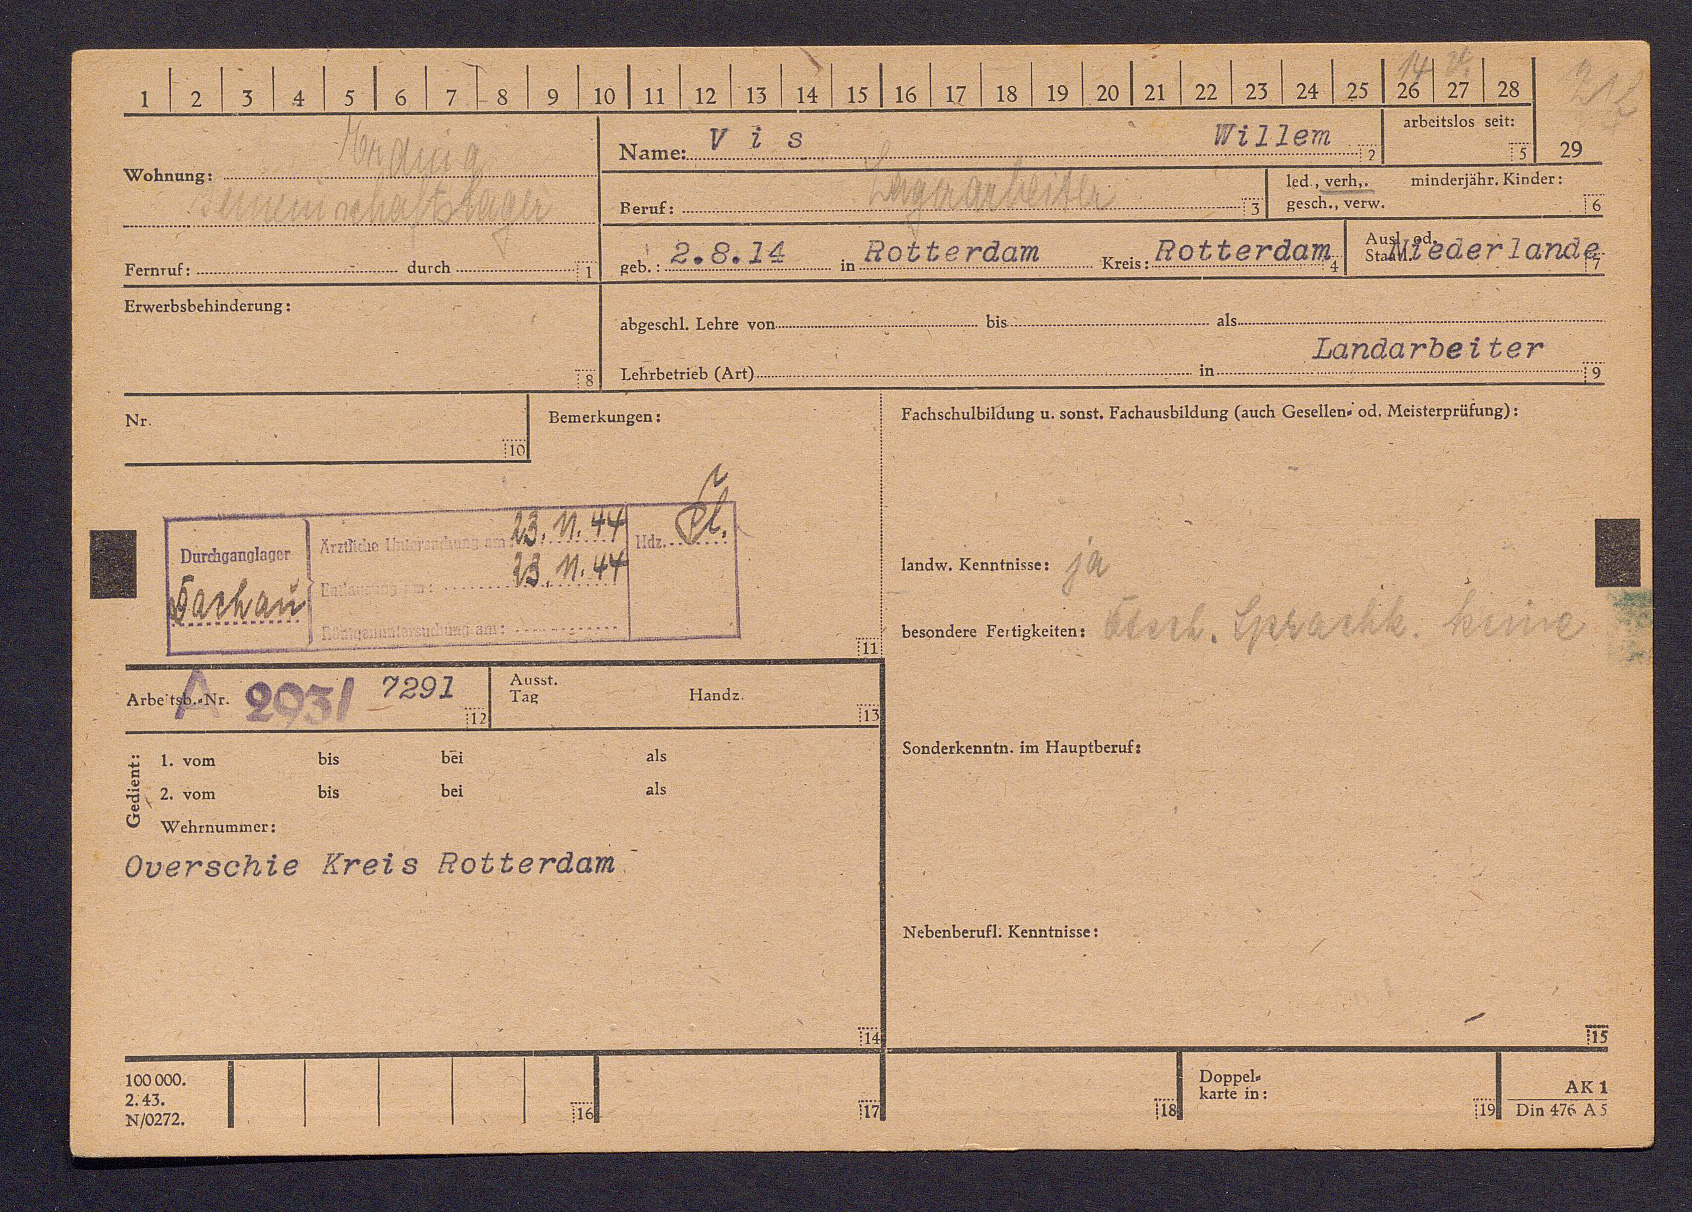 1 2 3 4 5 6 7 8 9 10 11 12 13 14 15 16 17 18 19 20 21 22 23 24 25 26 27 28
14
Name: V i s Willem 2
arbeitslos seit: 5
29
Wohnung: Erding
Gemeinschaftslager
Beruf: Lagerarbeiter 3
led., verh., minderjähr. Kinder:
gesch., verw. 6
Fernruf: durch 1
geb.: 2.8.14 in Rotterdam Kreis: Rotterdam 4
Ausl. od.
Staatl. Niederlande 7
Erwerbsbehinderung: 8
abgeschl. Lehre von bis als
Landarbeiter
Lehrbetrieb (Art) in 9
Nr. 10
Bemerkungen:
Fachschulbildung u. sonst. Fachausbildung (auch Gesellen- od. Meisterprüfung):
Durchganglager
Dachau
Ärztliche Untersuchung am: 23. 11. 44
Entlausung am: 23. 11. 44
Röntgenuntersuchung am:
Hdz.
11
landw. Kenntnisse: ja
besondere Fertigkeiten: Dtsch. Sprachk. keine
Arbeitsb.-Nr. A 293/ 7291 12
Ausst.
Tag Handz. 13
Gedient:
1. vom bis bei als
2. vom bis bei als
Wehrnummer:
Overschie Kreis Rotterdam
14
Sonderkenntn. im Hauptberuf:
Nebenberufl. Kenntnisse:
15
100 000.
2. 43.
N/0272.
16 17 18
Doppel-
karte in: 19
AK 1
Din 476 A 5